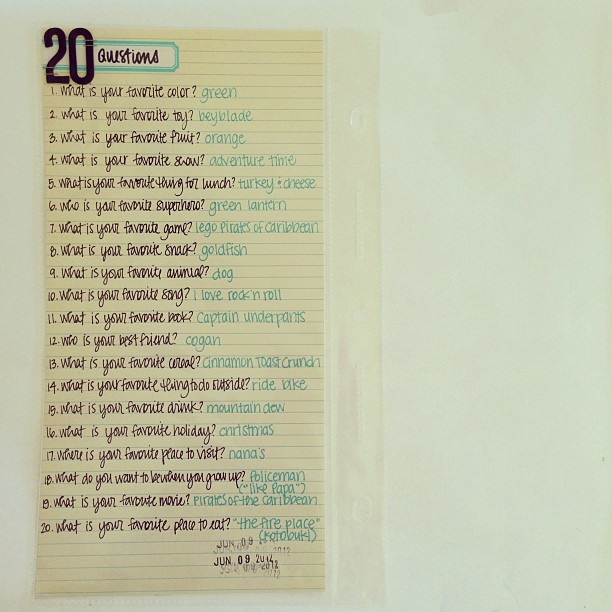 20 Questions
1. What is your favorite color? green
2. What is your favorite toy? beyblade
3. What is your favorite fruit? orange
4. What is your favorite show? adventure time
5. What is your favorite thing for lunch? turkey + cheese
6. Who is your favorite superhero? green lantern
7. What is your favorite game? lego Pirates of Caribbean
8. What is your favorite snack? goldfish
9. What is your favorite animal? dog
10. What is your favorite song? i love rock n roll
11. What is your favorite book? Captain underpants
12. who is your best friend? cogan
13. What is your favorite cereal? Cinnamon Toast Crunch
14. What is your favorite thing to do outside? ride bike
15. What is your favorite drink? mountain dew
16. What is your favorite holiday? christmas
17. Where is your favorite place to visit? nana's
18. What do you want to be when you grow up? Policeman
("like Papa")
19. What is your favorite movie? Pirates of the Caribbean
20. What is your favorite place to eat? "the fire place"
(kotobuki)
JUN 09
2012
JUN 09 2012